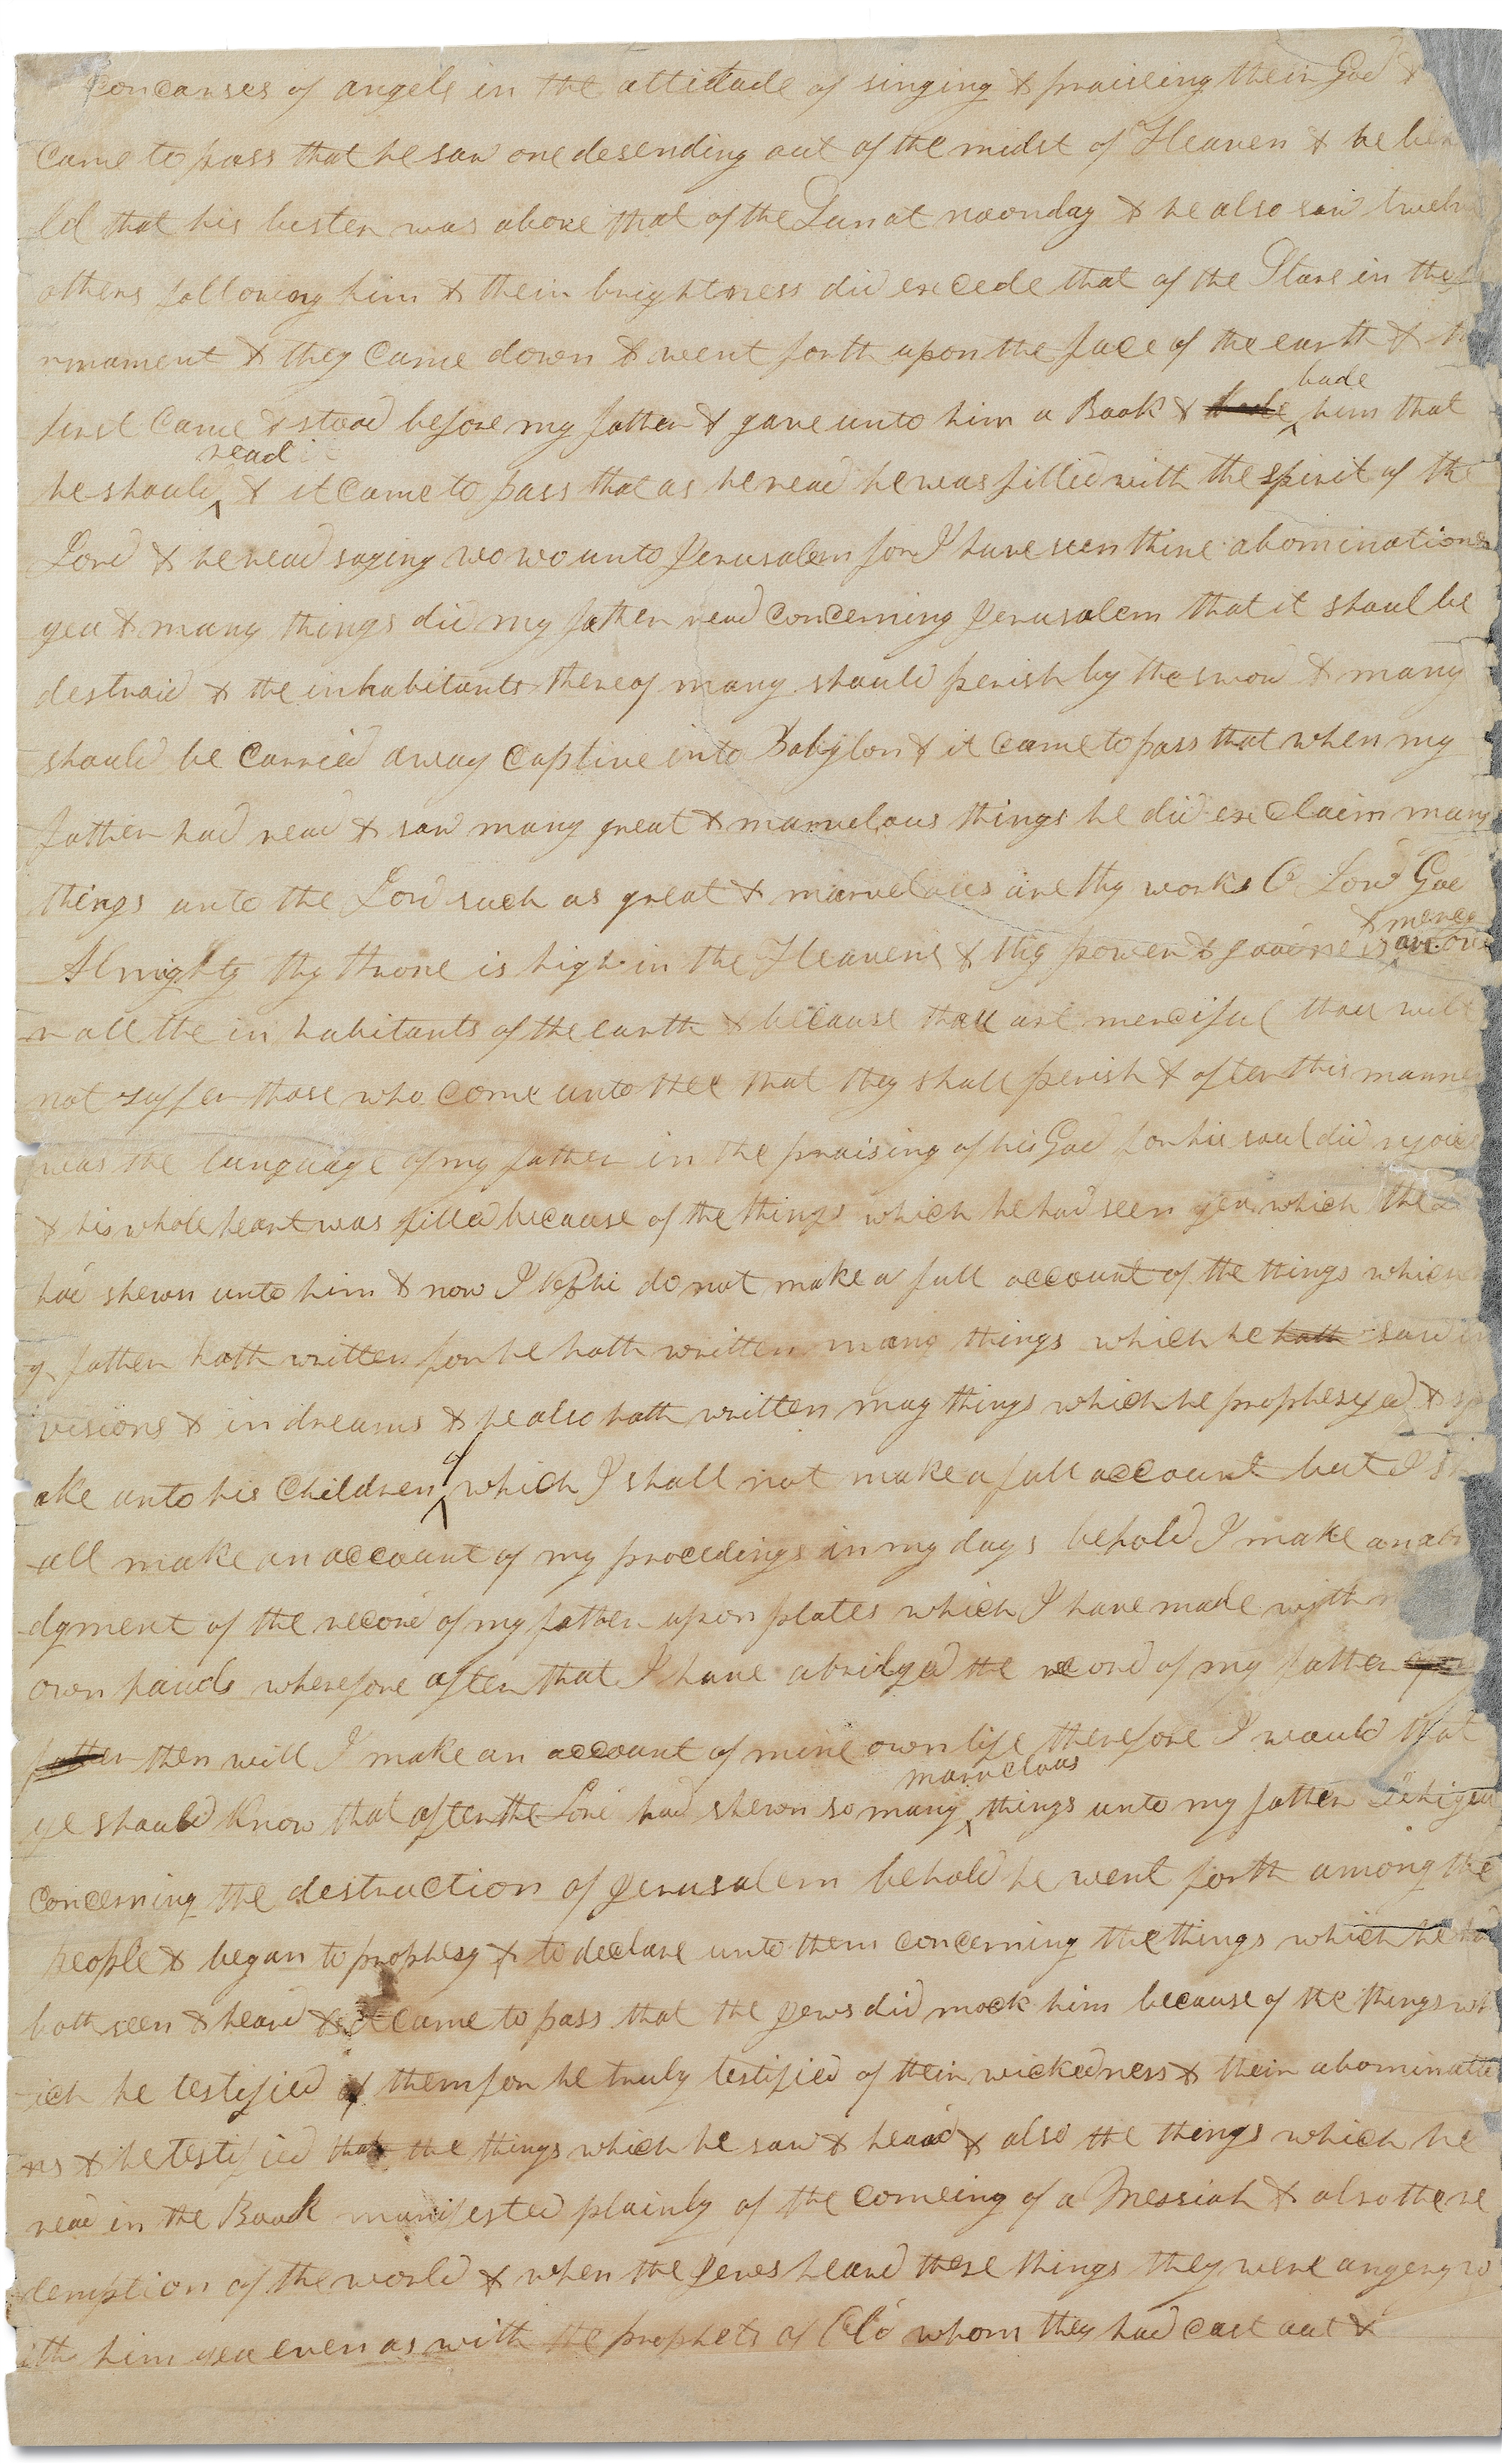 concarses of angels in the attitude of singing & praiseing their God &
came to pass that he saw one desending out of the midst of Heaven & he beh
ld that his luster was above that of the Sun at noonday & he also saw twelv
others following him & their brightness did excede that of the Stars in the
rmament & they came down & went forth upon the face of the earth & th
first came & stood before my father & gave unto him a Book & bade him that
he should read & it came to pass that as he read he was filled with the spirit of the
Lord & he read saying wo wo unto Jerusalem for I have seen thine abominations
yea & many things did my father read concerning Jerusalem that it shoul be
destroid & the inhabitants thereof many should perish by the sword & many
should be carried away captive into Babylon & it came to pass that when my
father had read & saw many great & marvelous things he did exclaim many
things unto the Lord such as great & marvelous are thy works O Lord God
Almighty thy throne is high in the Heavens & thy power & & mercy over
r all the in habitants of the earth & because thou art merciful thou wilt
not suffer those who come unto thee that they shall perish & after this manner
was the language of my father in the praising of his God for his soul did rejoice
& his whole heart was filled because of the things which he had seen yea which the
had shewn unto him & now I Nephi do not make a full account of the things which
y father hath written for he hath written many things which he hath saw in
visions & in dreams & he also hath written may things which he prophesyed & sp
ake unto his children of which I shall not make a full account but I sh
all make an account of my procedings in my days behold I make an abr
dgment of the record of my father upon plates which I have made with m
own hands wherefore after that I have abridged the record of my father
father then will I make an account of mine own life therefore I would that
ye should know that after the Lord had shewn so many marvelous things unto my father Lehi yea
concerning the destruction of Jerusalem behold he went forth among the
people & began to prophesy & to declare unto them concerning the things which he had
both seen & heard & it came to pass that the Jews did mock him because of the things wh
ich he testified of them for he truly testified of their wickedness & their abominatio
ns & he testified that the things which he saw & heard & also the things which he
read in the Book manifested plainly of the comeing of a Messiah & also the re
demption of the world & when the Jews heard these things they were angery w
ith him yea even as with the prophets of Old whom they had cast out &